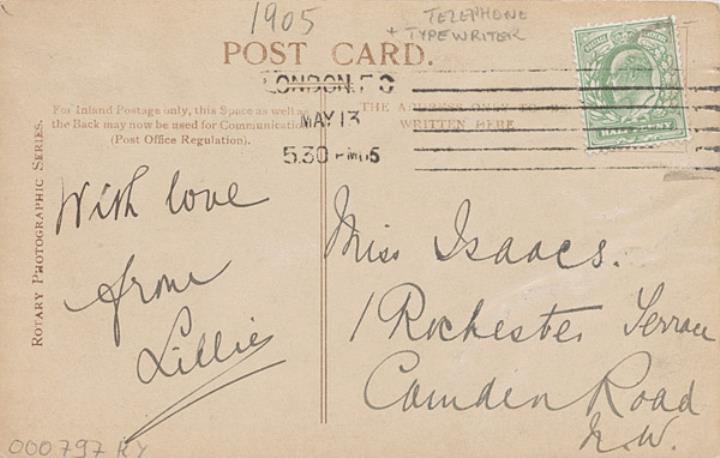 1905
TELEPHONE
+ TYPEWRITER
POST CARD.
LONDON. F O
MAY 13
5.30 PM 05
For Inland Postage only, this Space as well as
the Back may now be used for Communication
(Post Office Regulation).
THE ADDRESS ONLY TO BE
WRITTEN HERE
HALFPENNY
ROTARY PHOTOGRAPHIC SERIES.
With love
from
Lillie
Miss Isaacs.
1 Rochester Terrace
Camden Road
N.W.
000797 RY